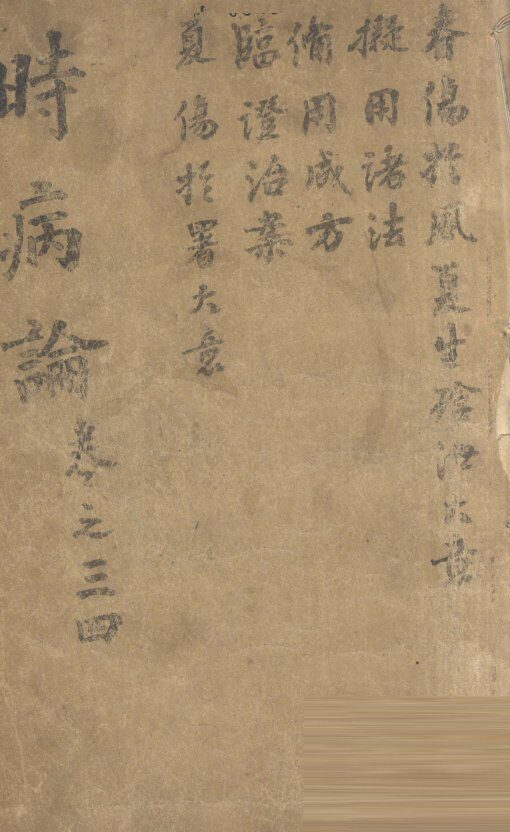 春傷於風夏生飱泄大意
擬用諸法
備用成方
臨證治案
夏傷於署大意
時病論
卷之三四